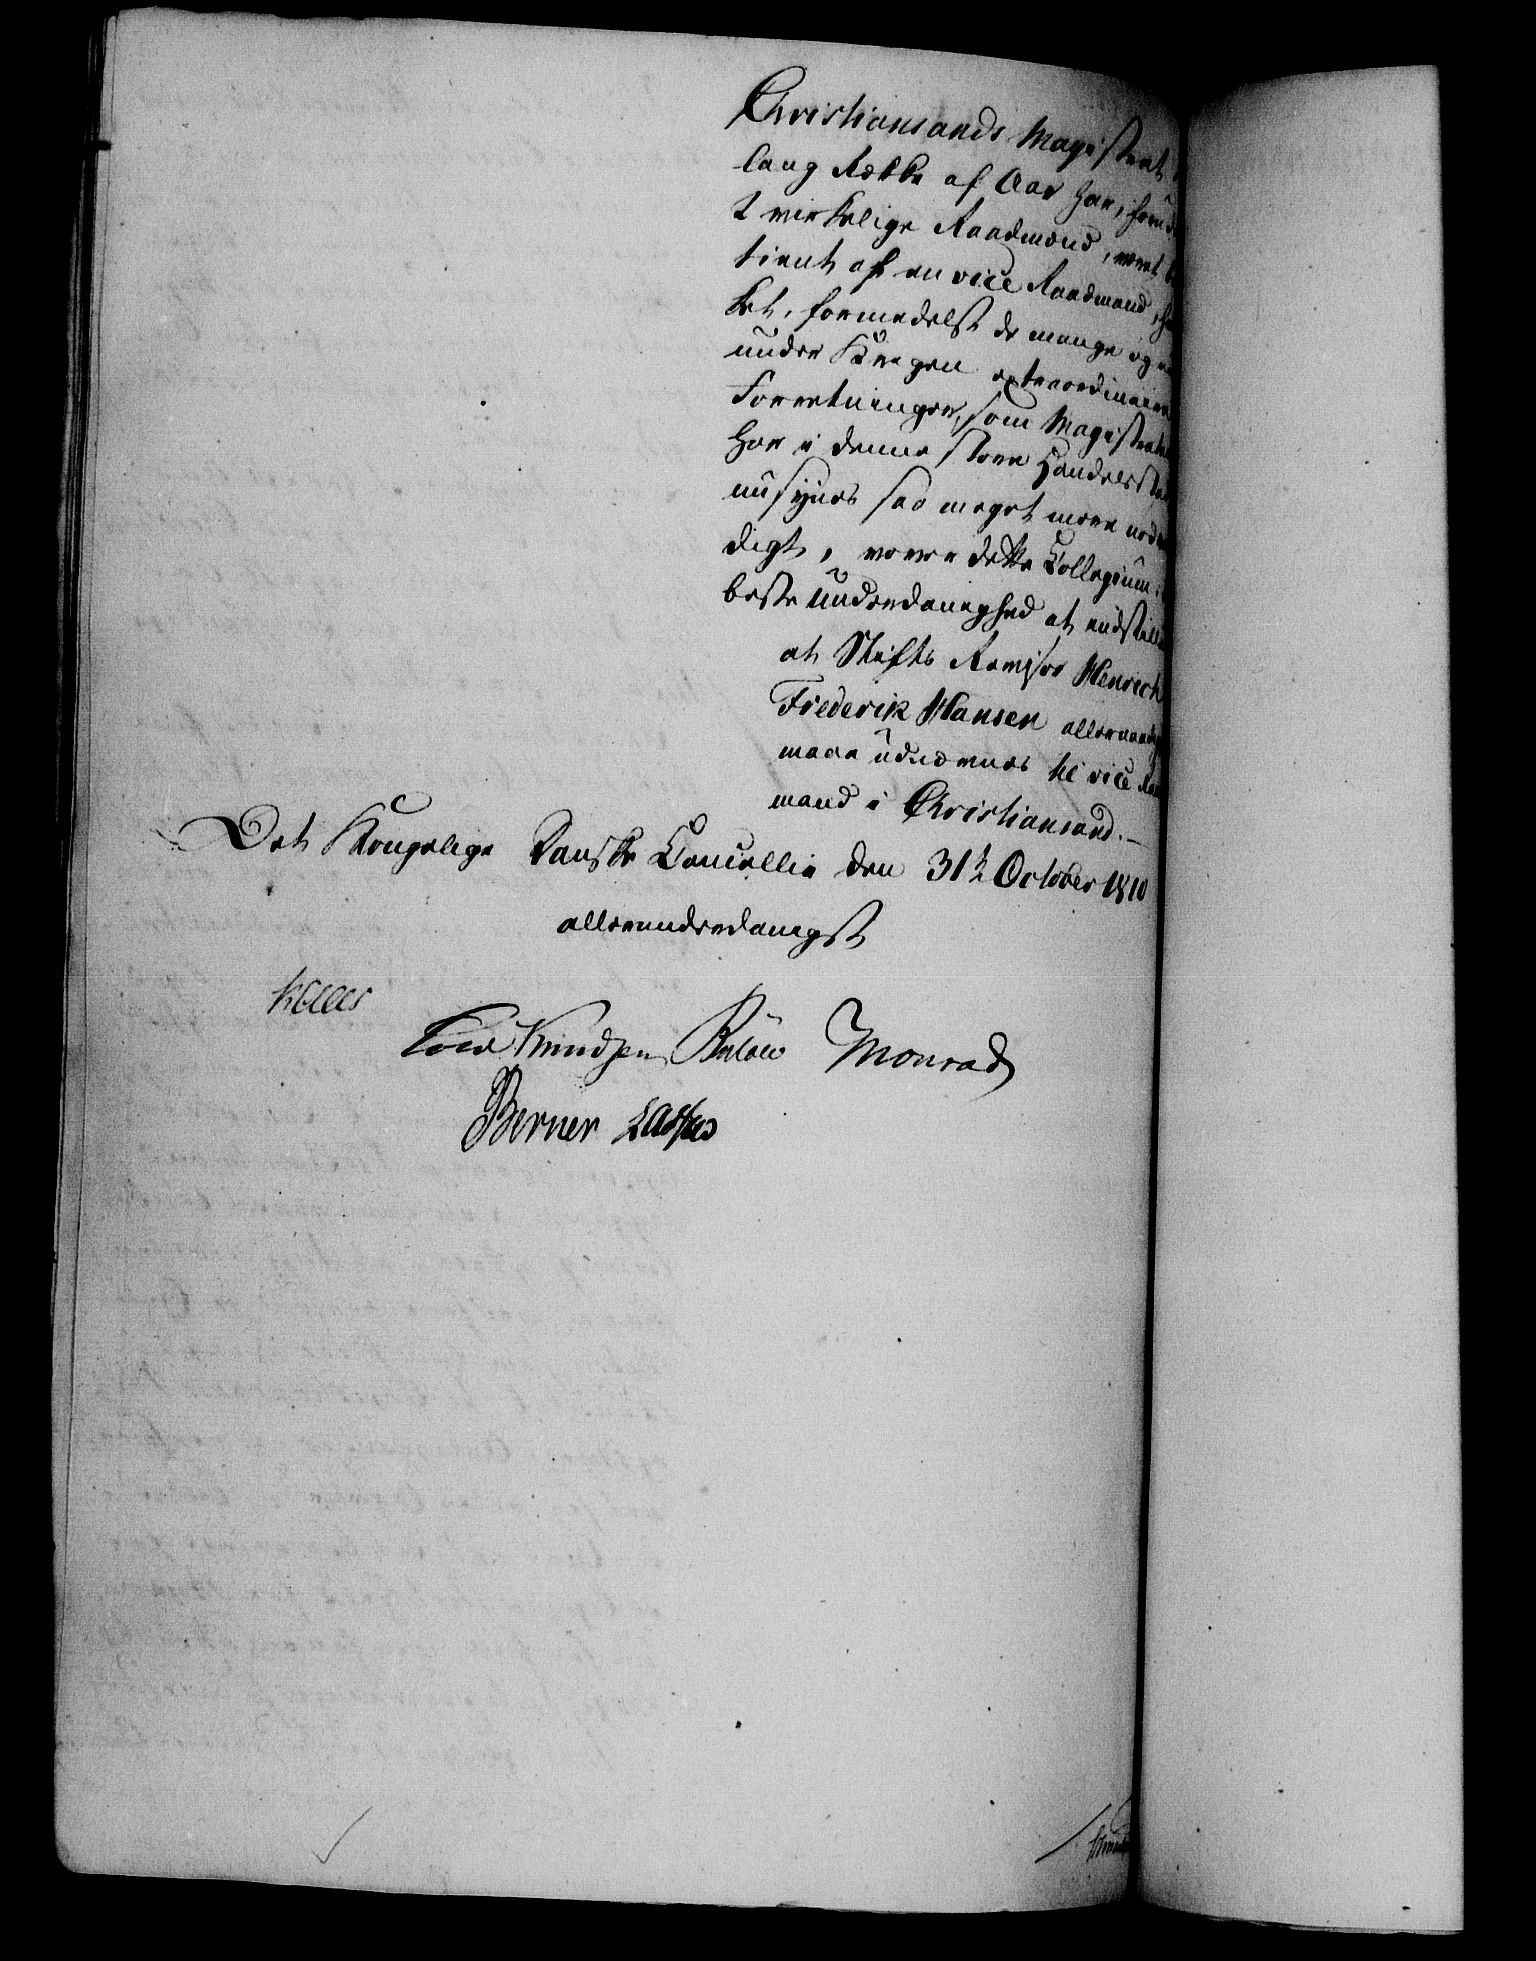 Christiansands Magistrat
lang Række af Aar har, foruden
2 virkelige Raadmænd, været be
tient af en vice Raadmand, hvil
ket, formedelst de mange og
under Krigen extraordinaire
Forretninger, som Magistraten
har i denne store Handelsstad
nu synes saa meget mere nødven
digt, vover dette Collegium i
dybeste Underdanighed at indstille
at Stifts Revisor Henrich
Frederik Hansen allernaadigst
maae udnævnes til vice Raad
mand i Christiansand. —
Det Kongelige Danske Cancellie den 31te October 1810
allerunderdanigst
Kaas
Cold Knudsen Bülow Monrad
Berner Lassen